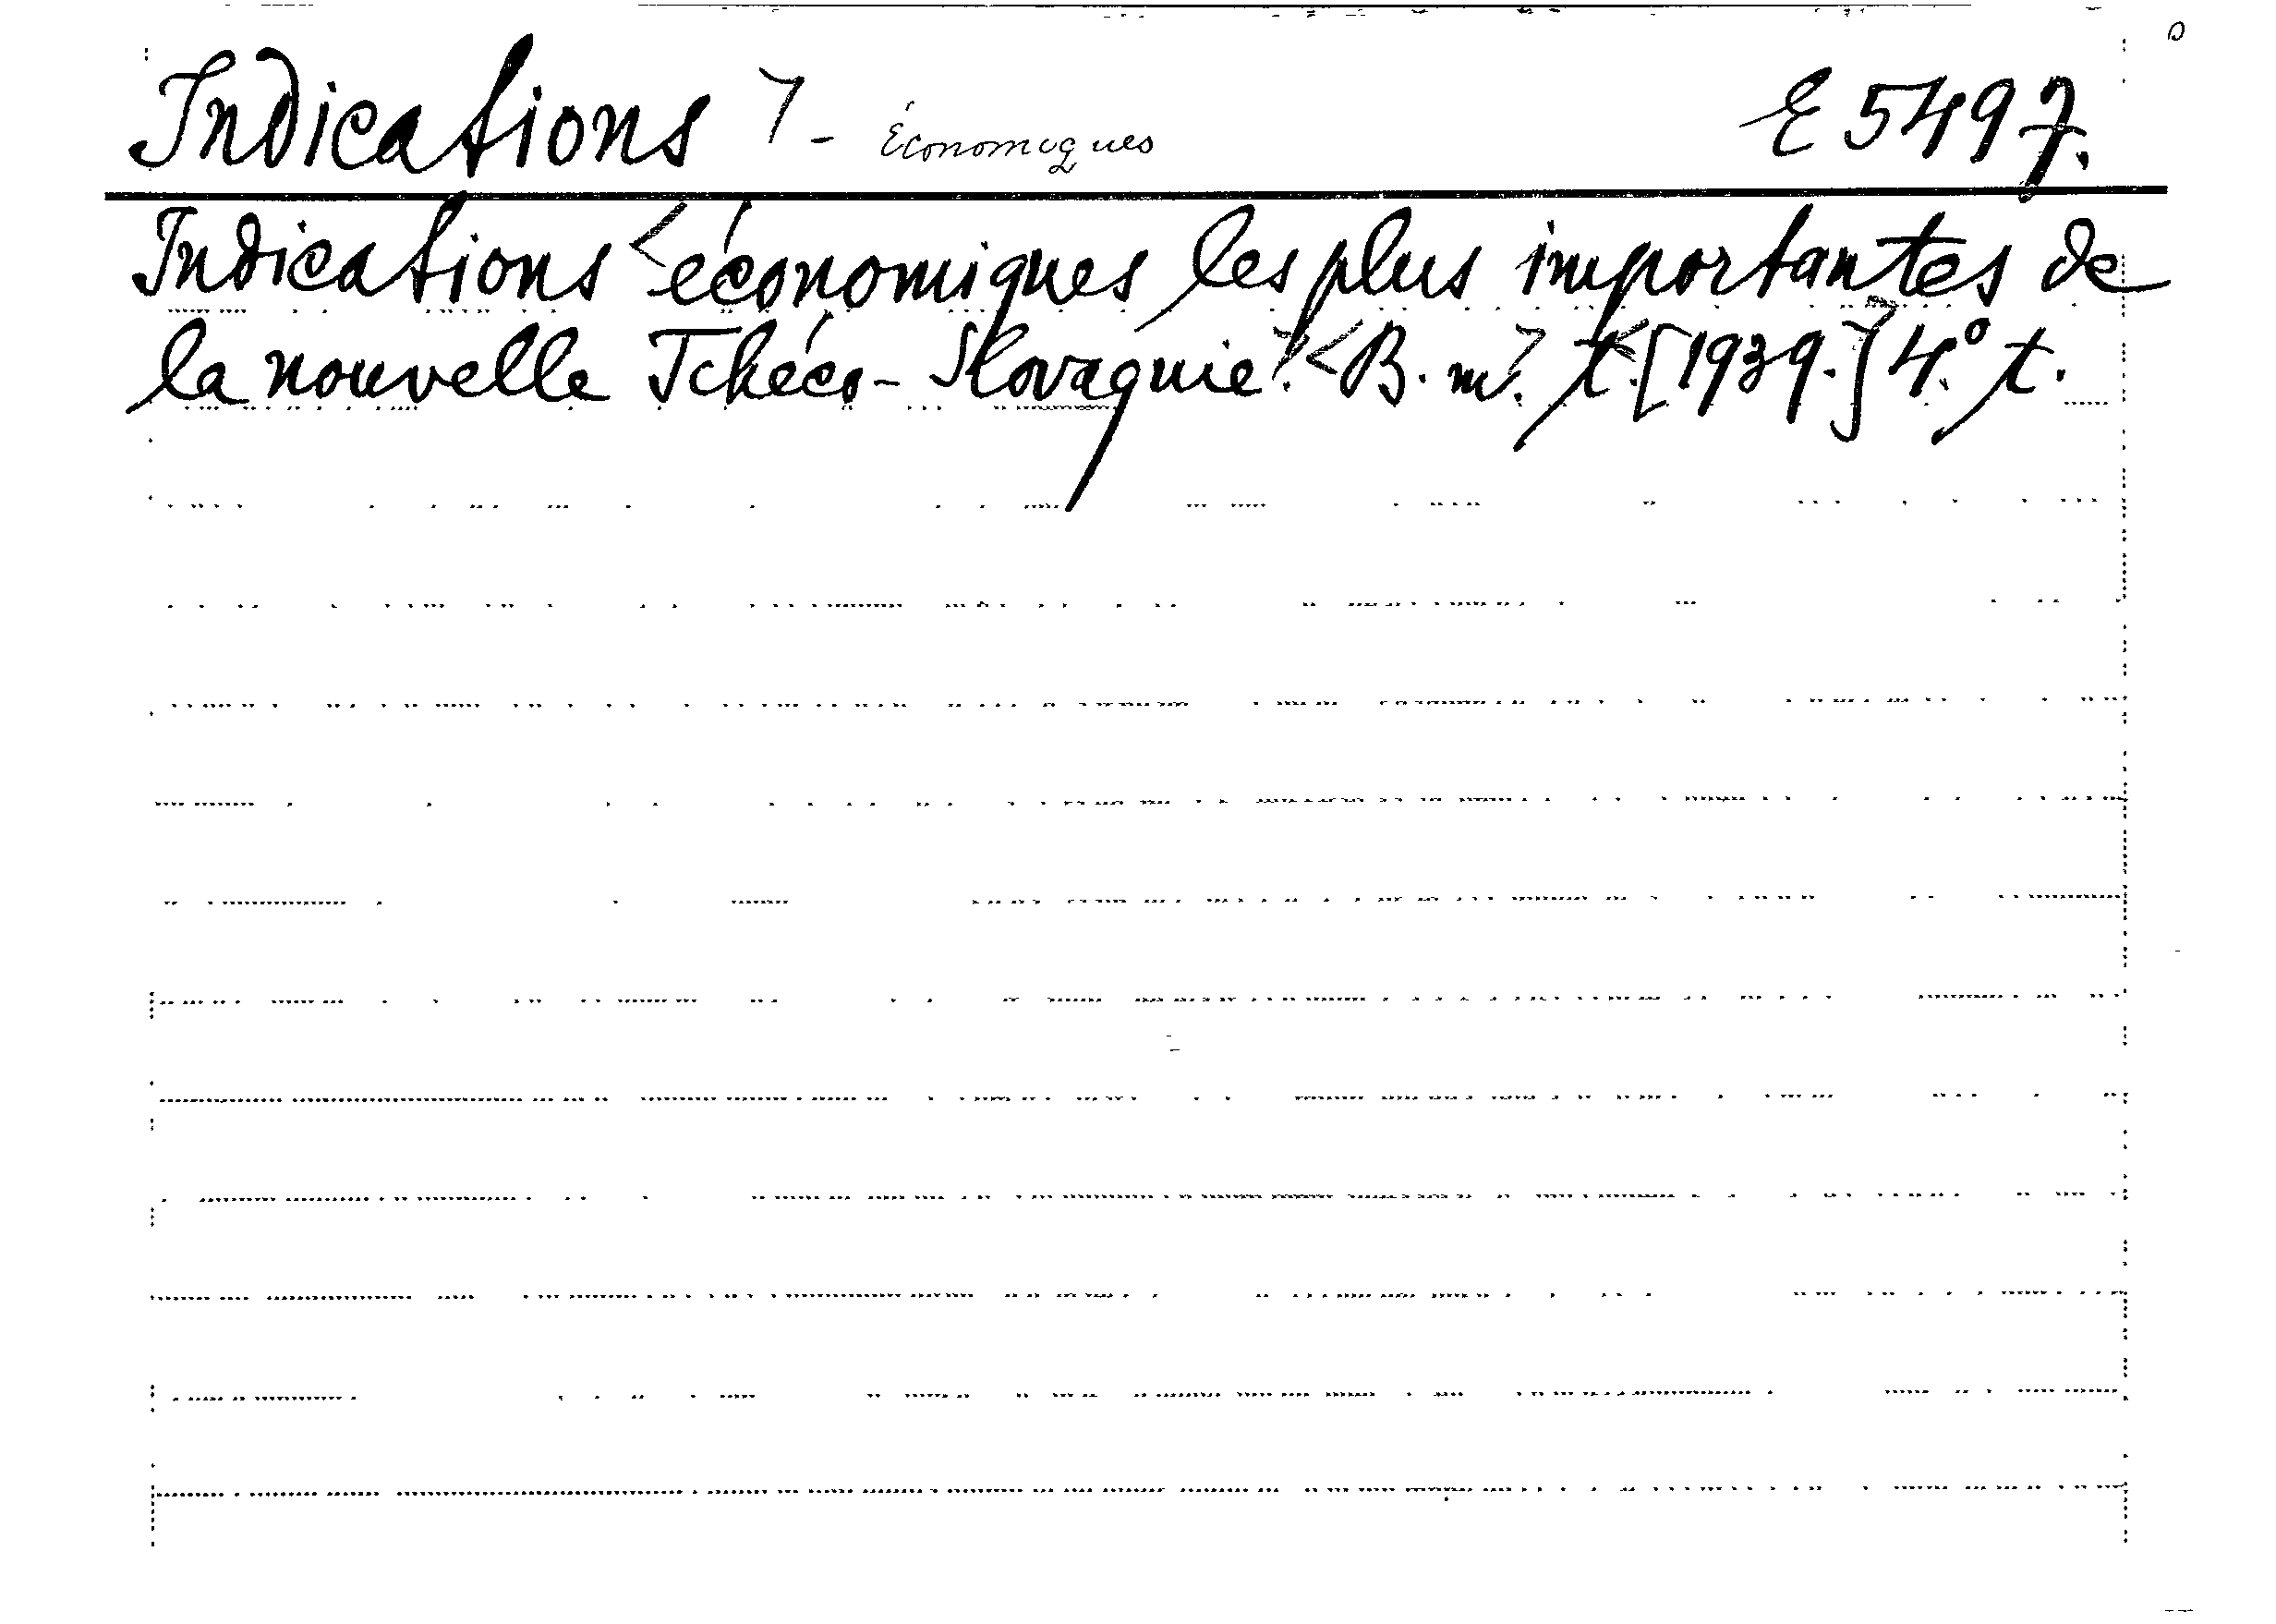 Indications - Économiques E 5497.
Indications économiques les plus importantes de
la nouvelle Tchéco-Slovaquie. B. m. t. [1939.] 4.° t.